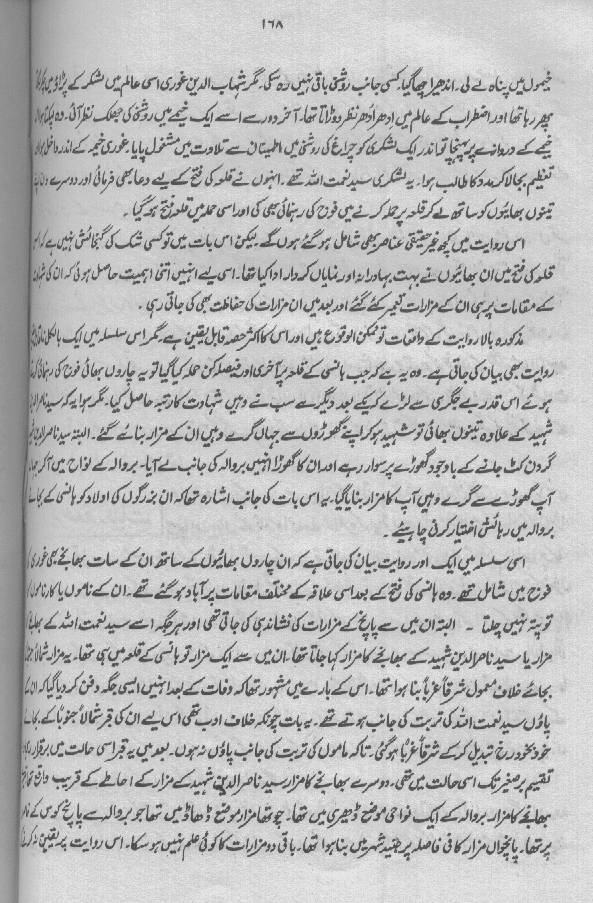 ۱۶۸
خیموں میں پناہ لے لی۔ اندھیرا چھا گیا۔ کسی جانب روشنی باقی نہیں رہ سکی۔ مگر شہاب الدین غوری اسی عالم میں لشکر کے پڑاؤ میں
پھر رہا تھا اور اضطراب کے عالم میں ادھر ادھر نظر دوڑاتا تھا۔ آخر دور سے اسے ایک خیمے میں روشنی کی جھلک نظر آئی۔ وہ
خیمے کے دروازے پر پہنچا تو اندر ایک لشکری کو چراغ کی روشنی میں اطمینان سے تلاوت میں مشغول پایا۔ غوری خیمہ کے اندر داخل ہوا
تعظیم بجا لا کر مدد کا طالب ہوا۔ یہ لشکری سید نعمت اللہ تھے۔ انہوں نے قلعہ کی فتح کے لیے دعا بھی فرمائی اور دوسرے دن اپنے
تینوں بھائیوں کو ساتھ لے کر قلعہ پر حملہ کرنے میں فوج کی رہنمائی بھی کی اور اسی حملہ میں قلعہ فتح ہو گیا۔
اس روایت میں کچھ غیر حقیقی عناصر بھی شامل ہو گئے ہوں گے۔ لیکن اس بات میں تو کسی شک کی گنجائش نہیں ہے کہ
قلعہ کی فتح میں ان بھائیوں نے بہت بہادرانہ اور نمایاں کردار ادا کیا تھا۔ اسی لیے انہیں اتنی اہمیت حاصل ہوئی کہ ان کی شہادت
کے مقامات پر ہی ان کے مزارات تعمیر کئے گئے اور بعد میں ان مزارات کی حفاظت بھی کی جاتی رہی۔
مذکورہ بالا روایت کے واقعات تو ممکن الوقوع ہیں اور اس کا اکثر حصہ قابل یقین ہے۔ مگر اس سلسلہ میں ایک بالکل
روایت بھی بیان کی جاتی ہے۔ وہ یہ ہے کہ جب ہانسی کے قلعہ پر آخری اور فیصلہ کن حملہ کیا گیا تو یہ چاروں بھائی فوج کی رہنمائی کرتے
ہوئے اس قدر بے جگری سے لڑے کہ یکے بعد دیگرے سب نے وہیں شہادت کا رتبہ حاصل کیا۔ مگر ہوا یہ کہ سید ناصر الدین
شہید کے علاوہ تینوں بھائی تو شہید ہو کر اپنے گھوڑوں سے جہاں گرے وہیں ان کے مزار بنائے گئے۔ البتہ سید ناصر الدین
گردن کٹ جانے کے باوجود گھوڑے پر سوار رہے اور ان کا گھوڑا انہیں بروالہ کی جانب لے آیا۔ بروالہ کے نواح میں آ کر جہاں
آپ گھوڑے سے گرے وہیں آپ کا مزار بنایا گیا۔ یہ اس بات کی جانب اشارہ تھا کہ ان بزرگوں کی اولاد کو ہانسی کے بجائے
بروالہ میں رہائش اختیار کرنی چاہیئے۔
اسی سلسلہ میں ایک اور روایت بیان کی جاتی ہے کہ ان چاروں بھائیوں کے ساتھ ان کے سات بھانجے بھی غوری
فوج میں شامل تھے۔ وہ ہانسی کی فتح کے بعد اسی علاقہ کے مختلف مقامات پر آباد ہو گئے تھے۔ ان کے ناموں یا کارناموں کا
تو پتہ نہیں چلتا ۔ البتہ ان میں سے پانچ کے مزارات کی نشاندہی کی جاتی تھی اور ہر جگہ اسے سید نعمت اللہ کے بھانجے کا
مزار یا سید ناصر الدین شہید کے بھانجے کا مزار کہا جاتا تھا۔ ان میں سے ایک مزار تو ہانسی کے قلعہ میں ہی تھا۔ یہ مزار شمالاً جنوباً
بجائے خلاف معمول شرقاً غرباً بنا ہوا تھا۔ اس کے بارے میں مشہور تھا کہ وفات کے بعد انہیں ایسی جگہ دفن کر دیا گیا کہ ان کے
پاؤں سید نعمت اللہ کی تربت کی جانب ہوتے تھے۔ یہ بات چونکہ خلاف ادب تھی اس لیے ان کی قبر شمالاً جنوباً کے بجائے
خود بخود رخ تبدیل کر کے شرقاً غرباً ہو گئی۔ تاکہ ماموں کی تربت کی جانب پاؤں نہ ہوں۔ بعد میں یہ قبر اسی حالت میں برقرار رہی اور
تقسیم برصغیر تک اسی حالت میں تھی۔ دوسرے بھانجے کا مزار سید ناصر الدین شہید کے مزار کے احاطے کے قریب واقع تھا۔
بھانجے کا مزار۔ بروالہ کے ایک نواحی موضع ڈھیری میں تھا۔ چوتھا مزار موضع ڈھاڈ میں تھا جو بروالہ سے پانچ کوس کے فاصلہ
پر تھا۔ پانچواں مزار کافی فاصلہ پر جنید شہر میں بنا ہوا تھا۔ باقی دو مزارات کا کوئی علم نہیں ہو سکا۔ اس روایت پر یقین نہ کرنے